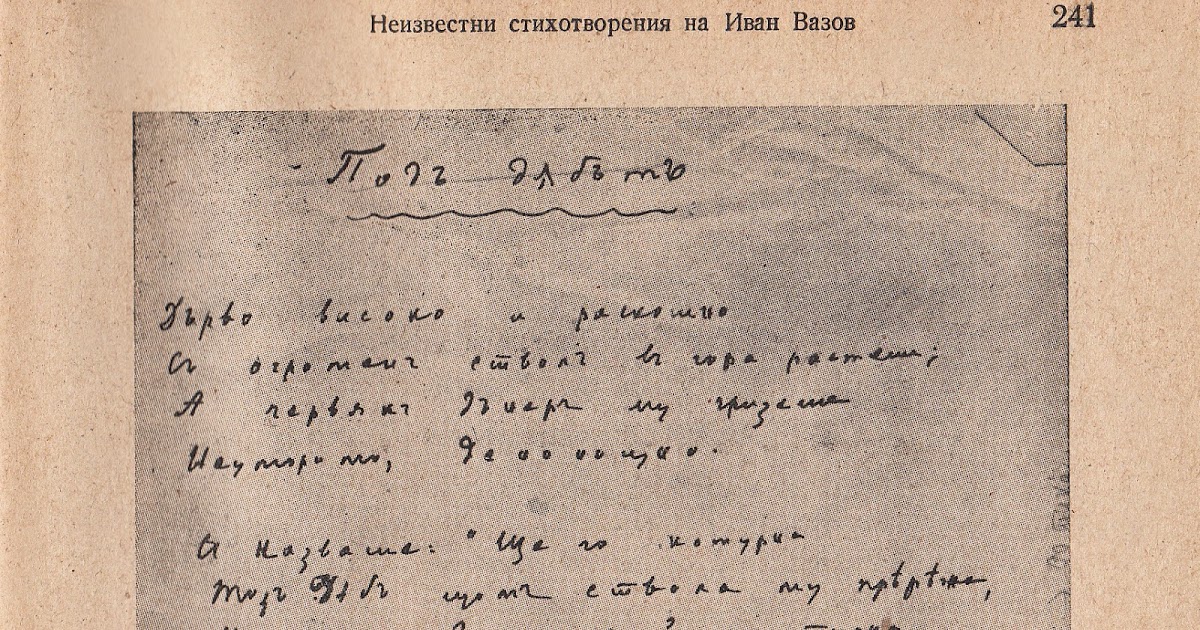 Неизвестни стихотворения на Иван Вазов
241
Подъ дѫбътъ
Дърво високо и раскошно
Съ огроменъ стволъ въ гора растеше;
А червякъ дънеръ му гризеше
Неуморно, деноношно.
И казваше: "Ще го катурна
Тозъ дѫбъ щомъ ствола му прѣрѣжа,